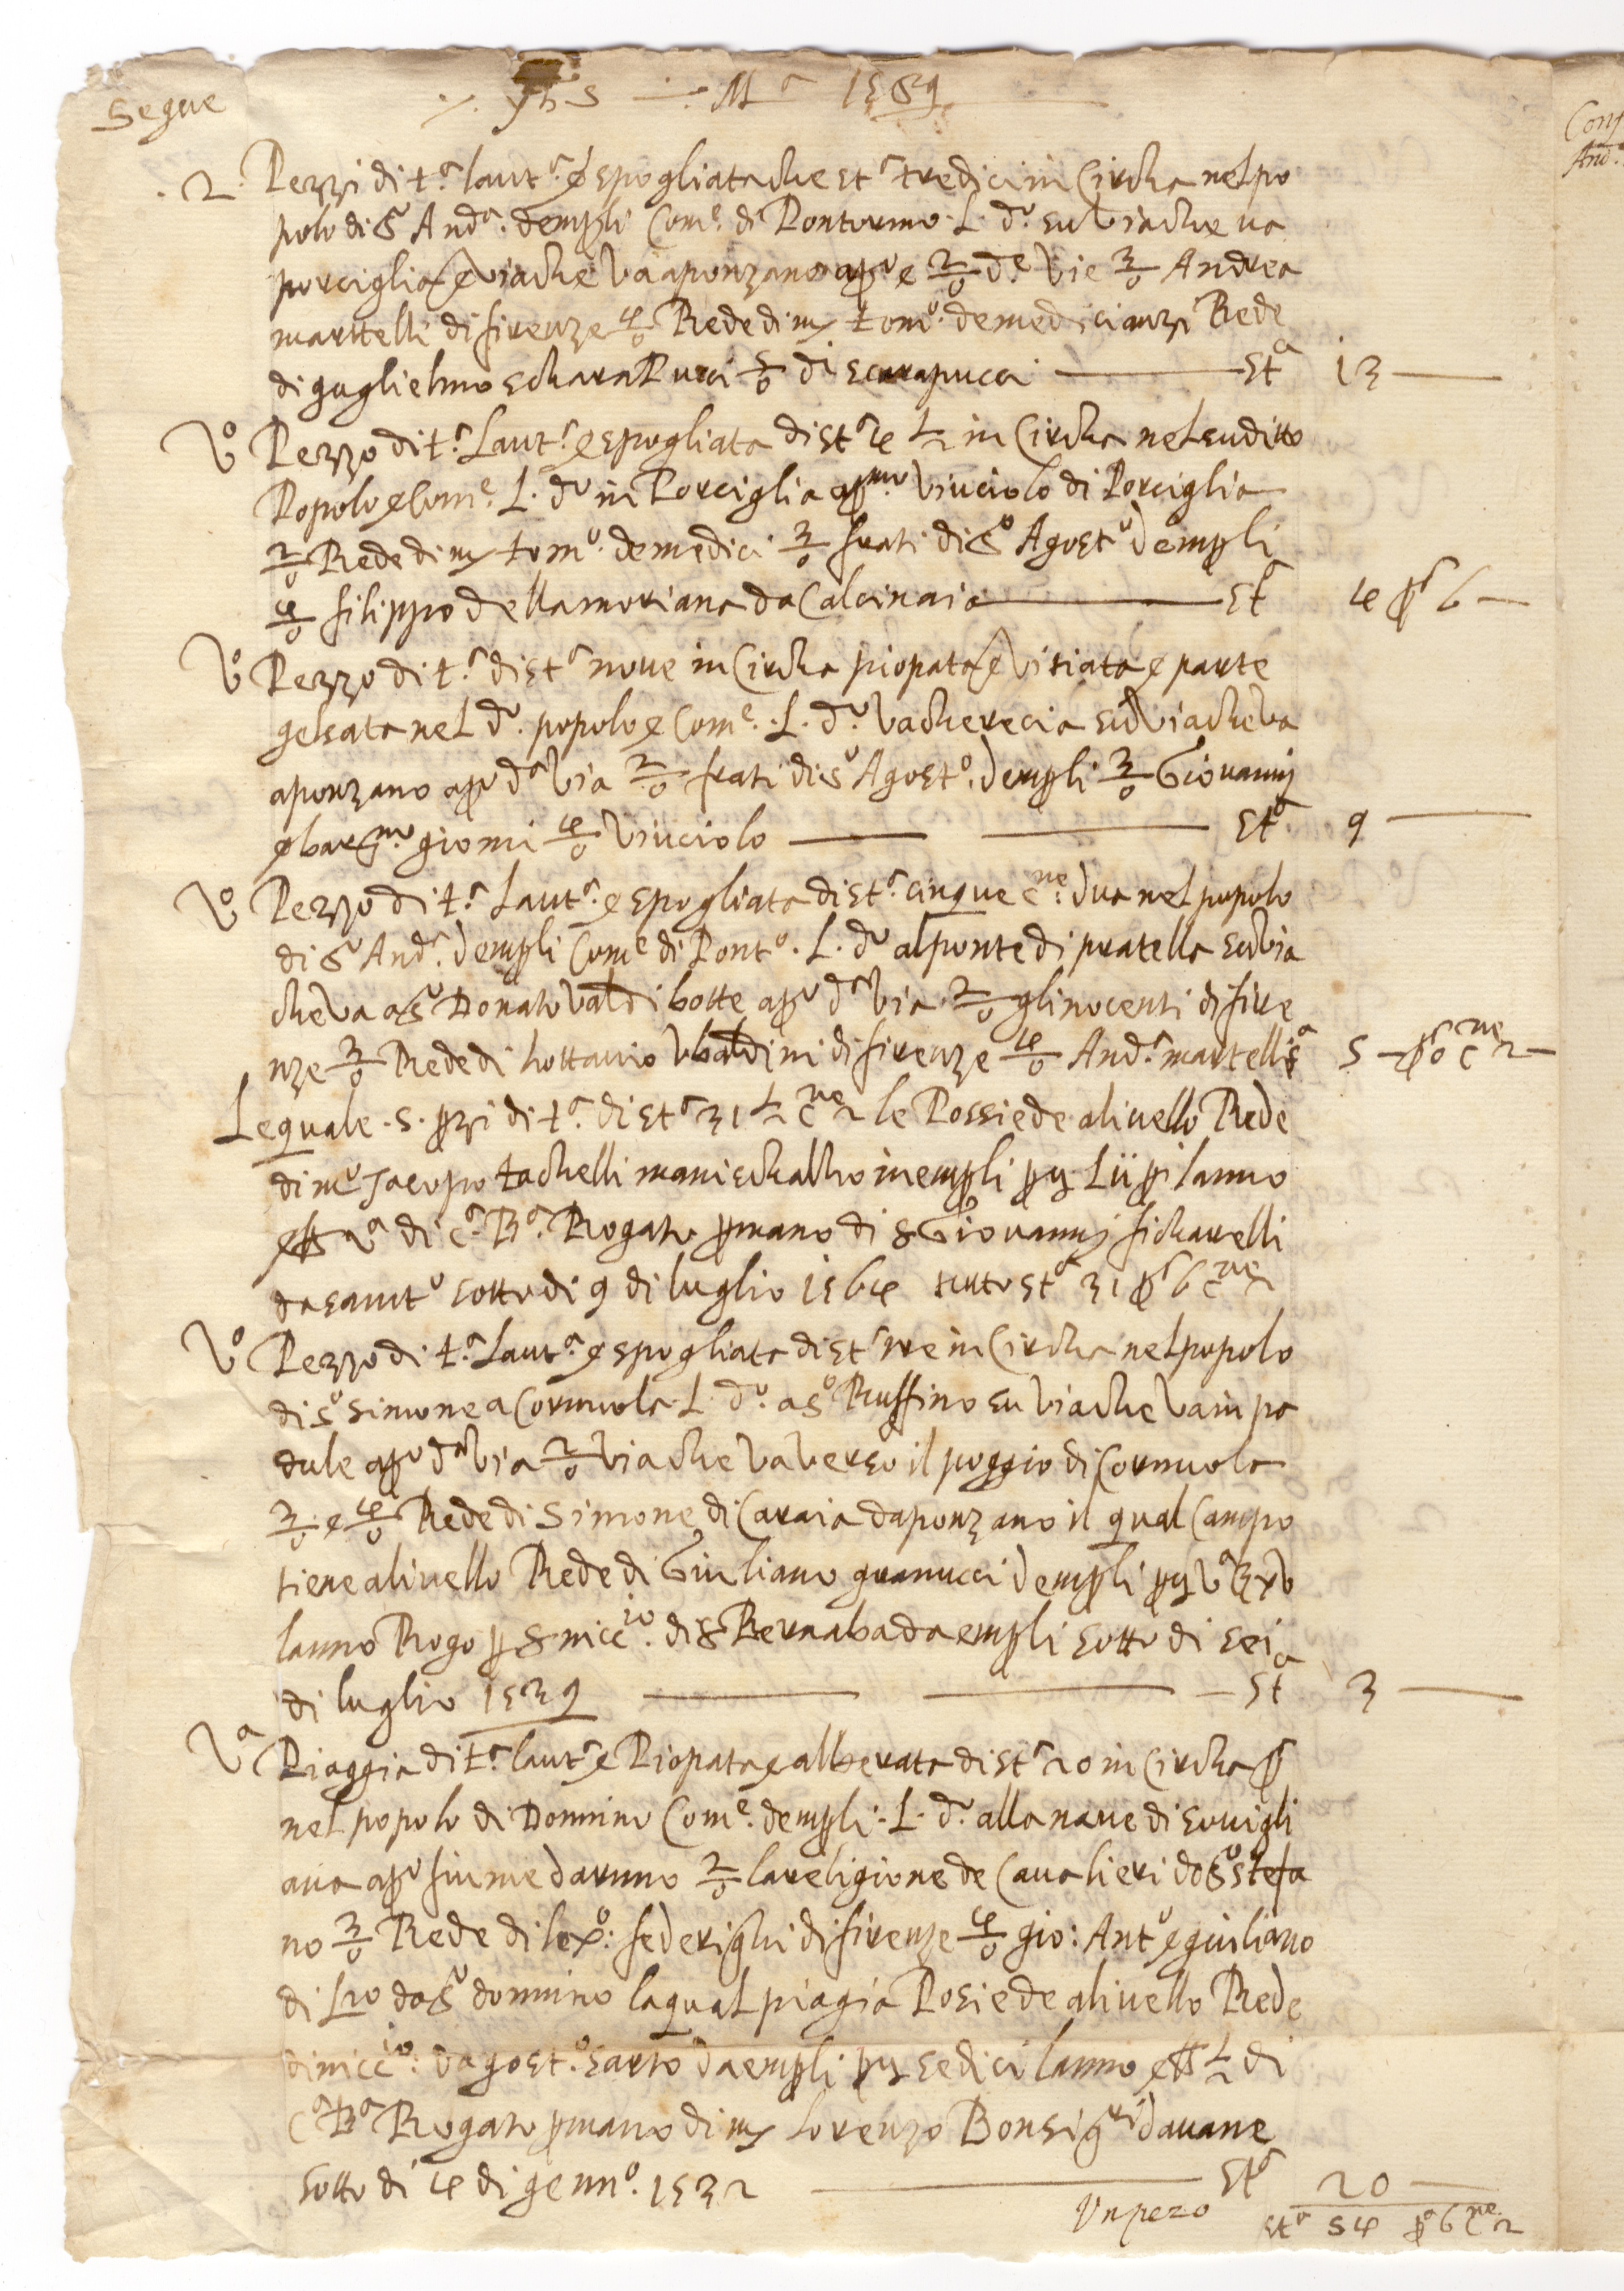 Segue
yhs — Mª 1589
2 Pezzi di tª lautª e spogliata che stª tredici in Circha nel po
polo di Sº Andª dempli Comᵉ di Pontormo L. dº su via che va
porciglia e via che va a ponzano apº e 2/0 dᵉ vie 3/0 Andrea
martelli di firenze 4/0 Rede di mʳ tomº de medici anzi Rede
di guglielmo scharapucci 5/0 di scarapucci — stª 13 —
Vº Pezzo di tª Lautª e spogliata di stª 4 ½ in Circha nel suditto
Popolo e Comᵉ L. dº in Porciglia apº ᵐº viuciolo di Porciglia
2/0 Rede di mʳ tomº de medici 3/0 frati di Sº Agostº dempli
4/0 filippo della moriana da Calcinaia — stª 4 pª 6 —
Vº Pezzo di tª di stª nove in Circha piopata e vitiata e parte
gelsata nel dº popolo e Comᵉ L. dº vacherecia su via che va
a ponzano apº dª via 2/0 frati di Sº Agostº dempli 3/0 Giovannj
e barᵐº giomi 4/0 viuciolo — — stª 9 —
Vº Pezzo di tª Lautª e spogliata di stª cinque cⁿᵉ dua nel popolo
di Sº Andª dempli Comᵉ di Pontº L. dº al ponte di pratella su via
che va a Sº Donato val di botte apº dª via 2/0 gli nocenti di fire
nze 3/0 Rede di hottavio Vbaldini di firenze 4/0 Andª martelli sª 5 — pª 0 cⁿᵉ 2 —
Lequale 5 pzi di tª di stª 31 ½ cⁿᵉ 2 le Possiede a livello Rede
di mº Jacopo tachelli manischalho in empli py Lii pi lanno
di cª Bª Rogato p mano di S Giovannj ficharelli
da santº sotto di 9 di luglio 1564 tutto stª 31 pª 6 cⁿᵉ 2
Vº Pezzo di tª Lautª e spogliata di stª tre in Circha nel popolo
di Sº Simone a Cornnola L. dº a Sº Ruffino su via che va in pa
dule apº dª via 2/0 via che va verso il poggio di Cornnola
3/0 e 4/0 Rede di Simone di Caraia da ponzano il qual Campo
tiene a livello Rede di Giuliano granucci dempli
lanno Rogo p S niccⁱº di S Bernaba da empli sotto di sei
di luglio 1539 — — stª 3 —
Vª Piaggia di tª lautª e Piopata e alberata di stª 20 in Circha p
nel popolo di Donnino Comᵉ dempli L. dº alla nave di sovigli
ana apº fiume darnno 2/0 la religione de Cavalieri da Sº stefa
no 3/0 Rede di lexº: federighi di firenze 4/0 gio: Antº e giuliano
di Lzo da Sº donnino la qual piagia Posiede a livello Rede
di niccⁱº: dagostº sarto da empli py sedici lanno ½ di
Cª Bª Rogato p mano di mʳ Lorenzo Bonsigʳⁱ davane
sotto di 4 di gennº 1532 — stª 20 —
Vn pezo stª 54 pª 6 cⁿᵉ 2